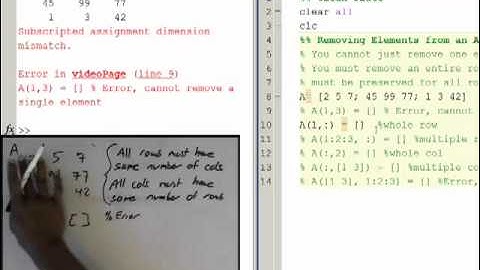 45 99 77
1 3 42
Subscripted assignment dimension
mismatch.
Error in videoPage (line 9)
A(1,3) = [] % Error, cannot remove a
single element
fx >>
A
5 7
77
42
[ ] % Error
All rows must have
same number of cols
All cols must have
same number of rows
clear all
clc
%% Removing Elements from an A
% You cannot just remove one e
% You must remove an entire ro
% must be preserved for all ro
8 A= [2 5 7; 45 99 77; 1 3 42]
9 % A(1,3) = [] % Error, cannot
10 A(1,:) = [] %whole row
11 % A(1:2:3, :) = [] %multiple
12 % A(:,2) = [] %whole col
13 % A(:,[1 3]) = [] %multiple c
14 % A([1 3], 1:2:3) = [] %Error,